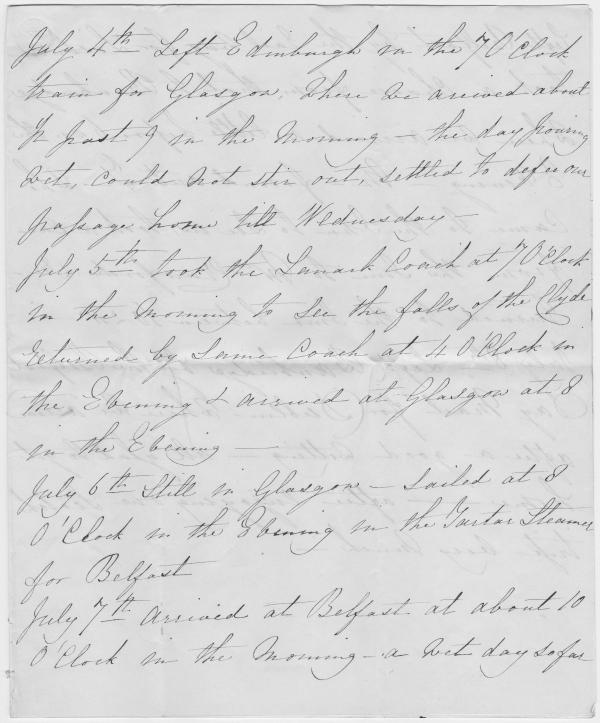 July 4th Left Edinburgh in the 7 O'Clock
train for Glasgow, where we arived about
½ past 9 in the Morning – the day pouring
wet, could not stir out, settled to defer our
passage home till Wednesday –
July 5th took the Lanark Coach at 7 O'Clock
in the Morning to see the falls of the Clyde
returned by same Coach at 4 O'Clock in
the Evening & arrived at Glasgow at 8
in the Evening —
July 6th Still in Glasgow – sailed at 8
O'Clock in the Evening in the Tartar Steamer
for Belfast
July 7th arrived at Belfast at about 10
O'Clock in the Morning – a wet day so far